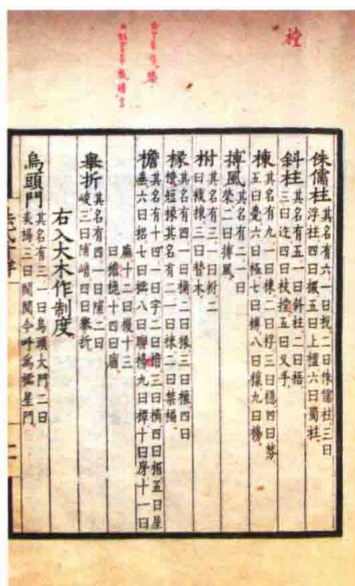 樘
侏儒柱其名有六一曰梲二曰侏儒柱三曰
浮柱四曰棳五曰上楹六曰蜀柱
斜柱其名有五一曰斜柱二曰梧
三曰迕四曰枝摚五曰叉手
棟其名有九一曰棟二曰桴三曰檼四曰棼
五曰甍六曰極七曰槫八曰檩九曰櫋
搏風其名有二一曰
榮二曰搏風
柎其名有三一曰柎二
曰複棟三曰替木
椽其名有四一曰桷二曰椽三曰榱四曰
橑短椽其名有二一曰梀二曰禁楄
檐其名有十四一曰宇二曰檐三曰樀四曰楣五曰屋
垂六曰梠七曰櫺八曰聯櫋九曰橝十曰庌十一曰
廡十二曰槾十三
曰檐㮰十四曰庮
舉折其名有四一曰陠二曰
峻三曰陠峭四曰舉折
右入大木作制度
烏頭門其名有三一曰烏頭大門二曰
表楬三曰閥閱今呼為櫺星門